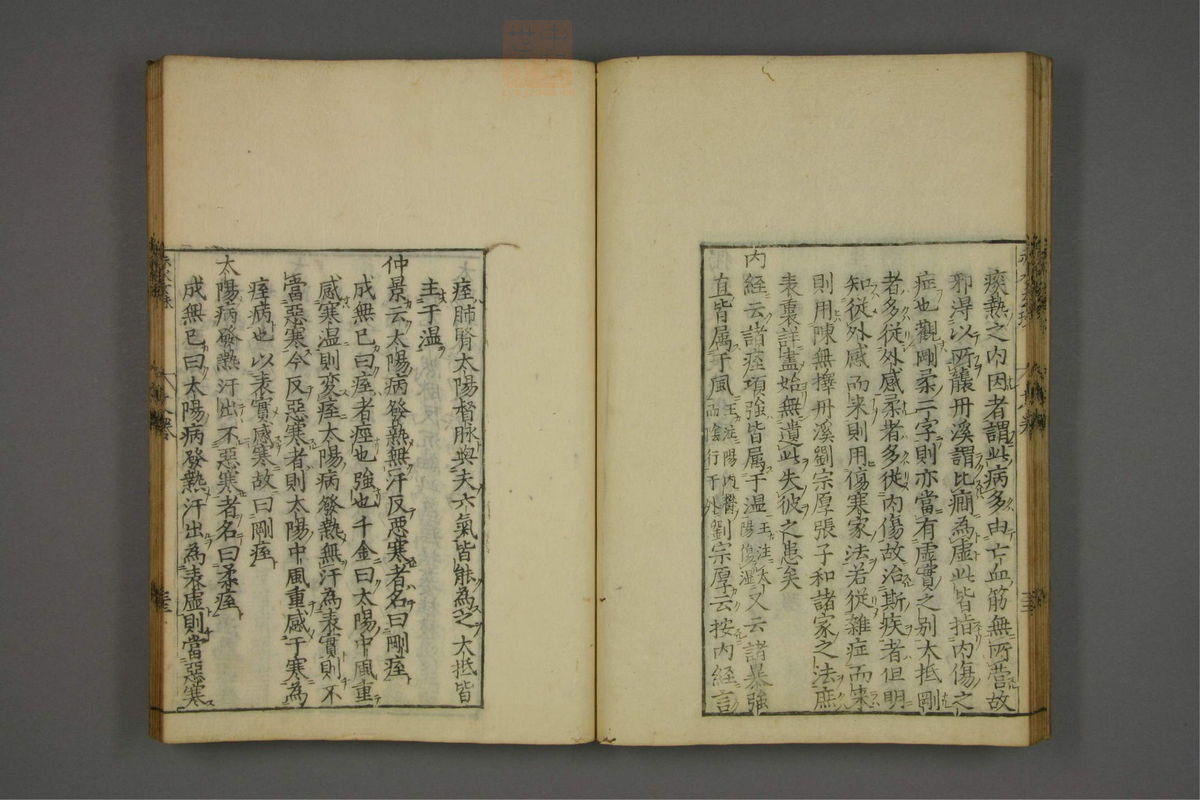 痰熱之内因者謂此病多由亡血筋無所营故
邪淂以所襲丹溪謂比癇為虛此皆指内傷之
症也觀剛柔二字則亦當有虛實之别大抵剛
者多從外感柔者多從内傷故治斯疾者但明
知從外感而来則用傷寒家法若從雜症而来
則用陳無擇丹溪劉宗厚張子和諸家之法庶
表裏詳盡始無遺此失彼之患矣
内経云諸痙項強皆属于温王注太陽傷濕又云諸暴強
直皆属于風王注陽内欝而陰行于外劉宗厚云按内経言
痙肺腎太陽督脉與夫六氣皆能為之大抵皆
主于温
仲景云太陽病發熱無汗反惡寒者名曰剛痙
成無已曰痙者痙也強也千金曰太陽中風重
感寒温則変痙太陽病發熱無汗為表實則不
當惡寒今反惡寒者則太陽中風重感于寒為
痙病也以表實感寒故曰剛痙
太陽病發熱汗出不惡寒者名曰柔痙
成無已曰太陽病發熱汗出為表虛則當惡寒